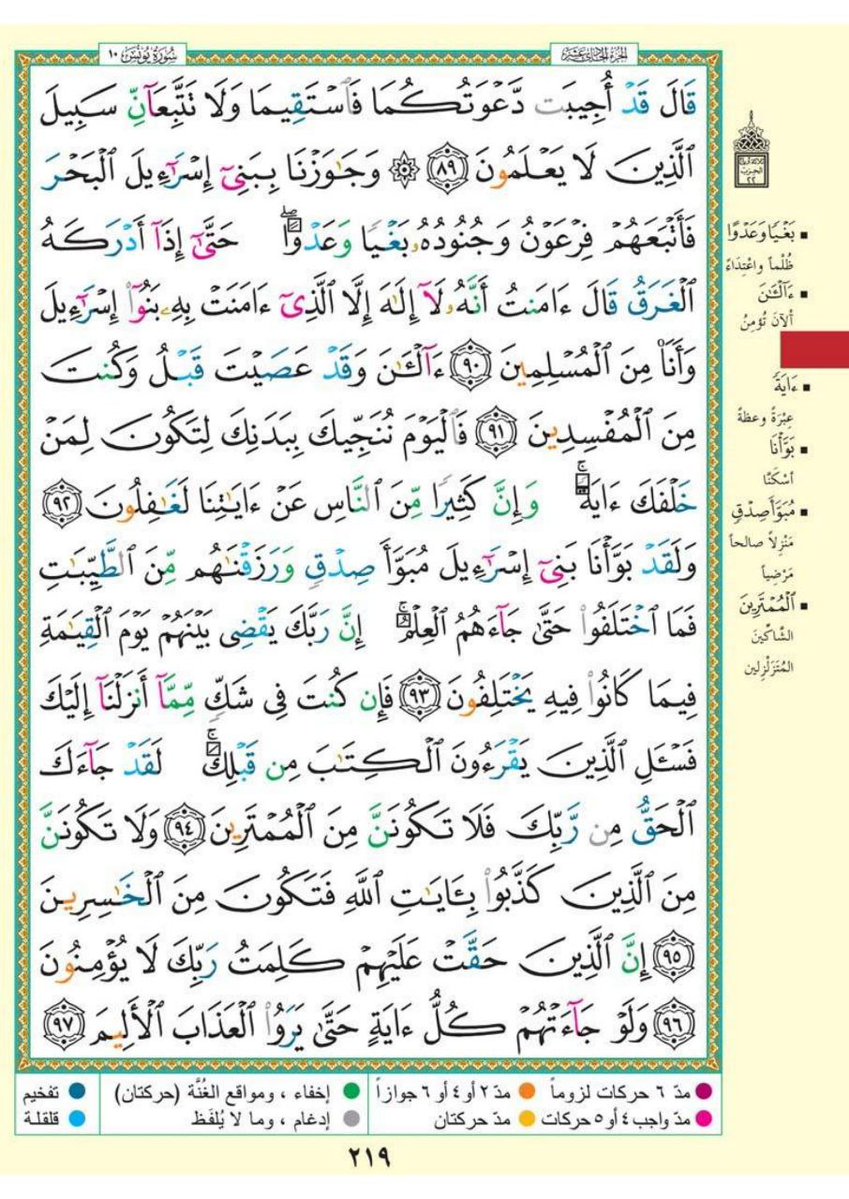 سُورَةُ يُونُس ١٠
الجزء الحادي عشر
قَالَ قَدْ أُجِيبَت دَّعْوَتُكُمَا فَٱسْتَقِيمَا وَلَا تَتَّبِعَآنِّ سَبِيلَ
ٱلَّذِينَ لَا يَعْلَمُونَ ٨٩ ۞ وَجَـٰوَزْنَا بِبَنِىٓ إِسْرَٰٓءِيلَ ٱلْبَحْرَ
فَأَتْبَعَهُمْ فِرْعَوْنُ وَجُنُودُهُۥ بَغْيًا وَعَدْوًا ۖ حَتَّىٰٓ إِذَآ أَدْرَكَهُ
ٱلْغَرَقُ قَالَ ءَامَنتُ أَنَّهُۥ لَآ إِلَـٰهَ إِلَّا ٱلَّذِىٓ ءَامَنَتْ بِهِۦ بَنُوٓا۟ إِسْرَٰٓءِيلَ
وَأَنَا۠ مِنَ ٱلْمُسْلِمِينَ ٩٠ ءَآلْـَٔـٰنَ وَقَدْ عَصَيْتَ قَبْلُ وَكُنتَ
مِنَ ٱلْمُفْسِدِينَ ٩١ فَٱلْيَوْمَ نُنَجِّيكَ بِبَدَنِكَ لِتَكُونَ لِمَنْ
خَلْفَكَ ءَايَةً ۚ وَإِنَّ كَثِيرًا مِّنَ ٱلنَّاسِ عَنْ ءَايَـٰتِنَا لَغَـٰفِلُونَ ٩٢
وَلَقَدْ بَوَّأْنَا بَنِىٓ إِسْرَٰٓءِيلَ مُبَوَّأَ صِدْقٍ وَرَزَقْنَـٰهُم مِّنَ ٱلطَّيِّبَـٰتِ
فَمَا ٱخْتَلَفُوا۟ حَتَّىٰ جَآءَهُمُ ٱلْعِلْمُ ۚ إِنَّ رَبَّكَ يَقْضِى بَيْنَهُمْ يَوْمَ ٱلْقِيَـٰمَةِ
فِيمَا كَانُوا۟ فِيهِ يَخْتَلِفُونَ ٩٣ فَإِن كُنتَ فِى شَكٍّ مِّمَّآ أَنزَلْنَآ إِلَيْكَ
فَسْـَٔلِ ٱلَّذِينَ يَقْرَءُونَ ٱلْكِتَـٰبَ مِن قَبْلِكَ ۚ لَقَدْ جَآءَكَ
ٱلْحَقُّ مِن رَّبِّكَ فَلَا تَكُونَنَّ مِنَ ٱلْمُمْتَرِينَ ٩٤ وَلَا تَكُونَنَّ
مِنَ ٱلَّذِينَ كَذَّبُوا۟ بِـَٔايَـٰتِ ٱللَّهِ فَتَكُونَ مِنَ ٱلْخَـٰسِرِينَ
٩٥ إِنَّ ٱلَّذِينَ حَقَّتْ عَلَيْهِمْ كَلِمَتُ رَبِّكَ لَا يُؤْمِنُونَ
٩٦ وَلَوْ جَآءَتْهُمْ كُلُّ ءَايَةٍ حَتَّىٰ يَرَوُا۟ ٱلْعَذَابَ ٱلْأَلِيمَ ٩٧
بَغْيًا وَعَدْوًا
ظُلْماً واعْتِدَاءً
ءَآلْـَٔـٰنَ
ألآنَ تُؤمِنُ
ءَايَةً
عِبْرَةً وعظةً
بَوَّأْنَا
أسْكَنَّا
مُبَوَّأَ صِدْقٍ
مَنْزِلاً صالحاً
مَرْضِياً
ٱلْمُمْتَرِينَ
الشَّاكِّينَ
المُتَزَلْزِلين
مدّ ٦ حركات لزوماً
مدّ ٢ أو ٤ أو ٦ جوازاً
إخفاء ، ومواقع الغُنَّة (حركتان)
تفخيم
مدّ واجب ٤ أو ٥ حركات
مدّ حركتان
إدغام ، وما لا يُلفَظ
قلقلة
٢١٩